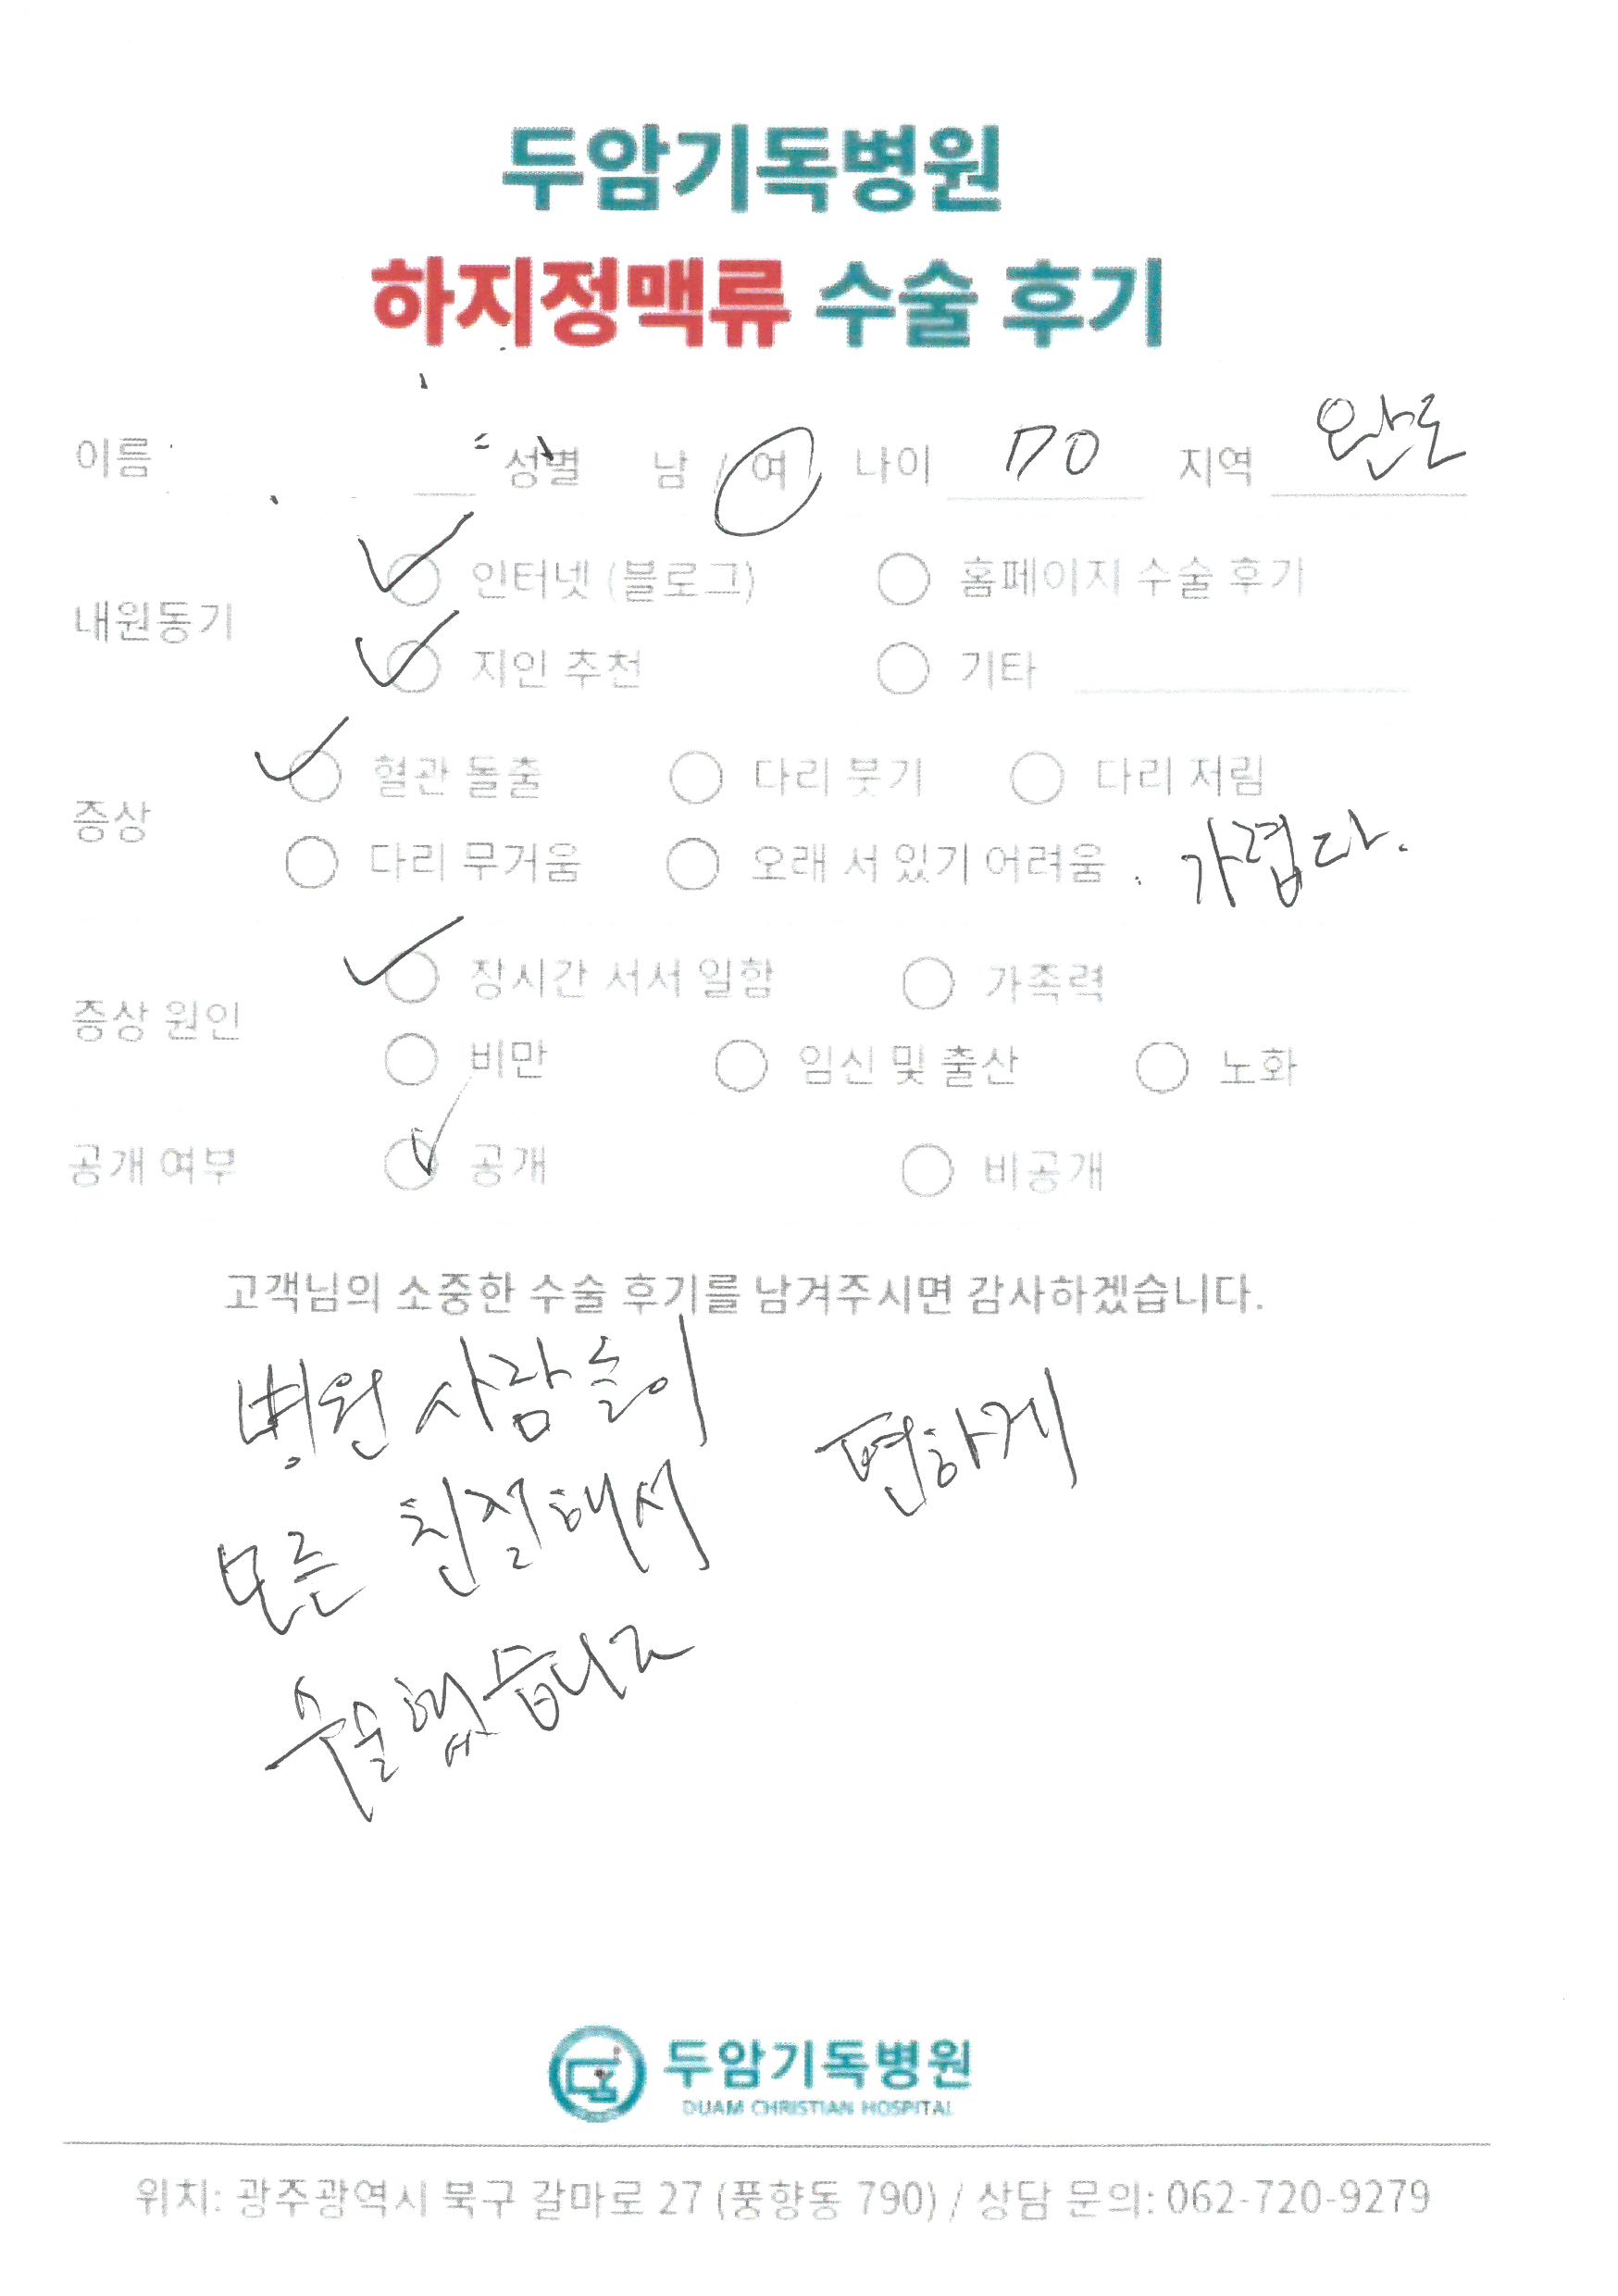 두암기독병원
하지정맥류 수술 후기
이름 성별 남 / 여 나이 70 지역 완도
내원동기
인터넷 (블로그) 홈페이지 수술 후기
지인 추천 기타
증상
혈관 돌출 다리 붓기 다리 저림
다리 무거움 오래 서 있기 어려움 가렵다.
증상 원인
장시간 서서 일함 가족력
비만 임신 및 출산 노화
공개 여부 공개 비공개
고객님의 소중한 수술 후기를 남겨주시면 감사하겠습니다.
병원 사람들이
모든 친절해서 편하게
수술했습니다
두암기독병원
DUAM CHRISTIAN HOSPITAL
위치: 광주광역시 북구 갈마로 27 (풍향동 790) / 상담 문의: 062-720-9279